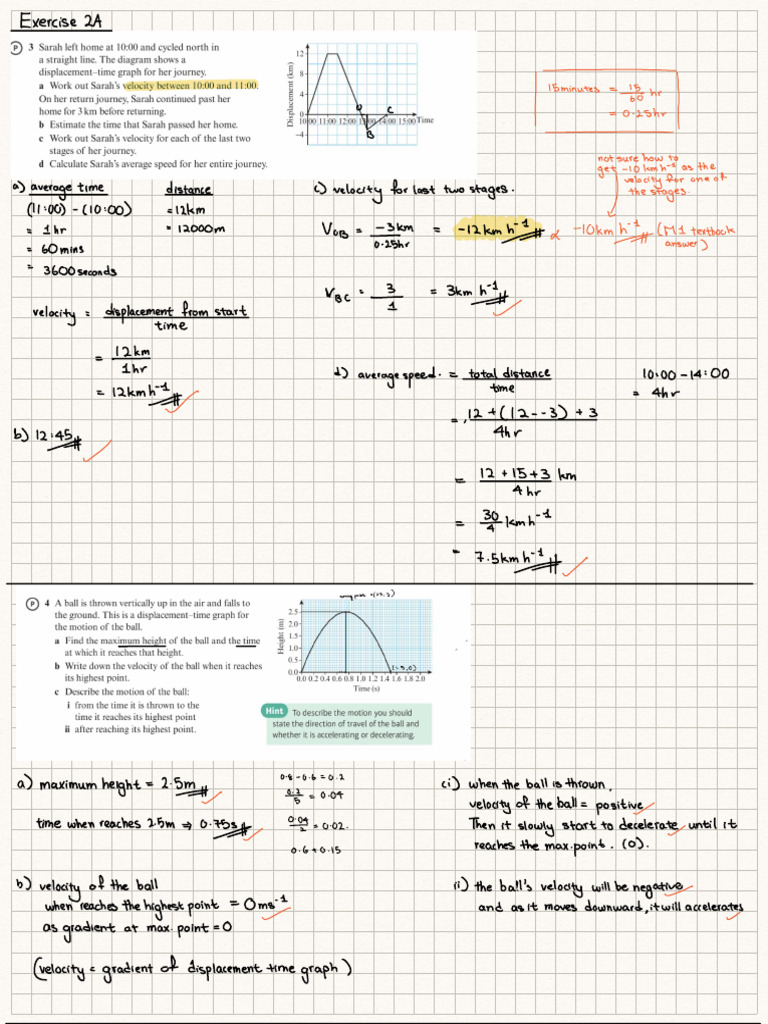 Exercise 2A
P 3 Sarah left home at 10:00 and cycled north in
a straight line. The diagram shows a
displacement–time graph for her journey.
a Work out Sarah's velocity between 10:00 and 11:00.
On her return journey, Sarah continued past her
home for 3 km before returning.
b Estimate the time that Sarah passed her home.
c Work out Sarah's velocity for each of the last two
stages of her journey.
d Calculate Sarah's average speed for her entire journey.
Displacement (km)
12
8
4
0
−4
10:00 11:00 12:00 13:00 14:00 15:00 Time
O
B
C
15 minutes = 15/60 hr
= 0.25hr
not sure how to
get -10 km h⁻¹ as the
velocity for one of
the stages.
a) average time
(11:00) - (10:00)
= 1 hr
= 60 mins
= 3600 seconds
distance
= 12km
= 12000m
velocity = displacement from start / time
= 12km / 1hr
= 12kmh⁻¹
b) 12:45
c) velocity for last two stages.
V_OB = -3km / 0.25hr = -12km h⁻¹
-10km h⁻¹ (M1 textbook
answer)
V_BC = 3/1 = 3km h⁻¹
d) average speed. = total distance / time
10:00 - 14:00
= 4hr
= 12 + (12 - -3) + 3 / 4hr
= 12 + 15 + 3 / 4hr km
= 30/4 kmh⁻¹
= 7.5kmh⁻¹
P 4 A ball is thrown vertically up in the air and falls to
the ground. This is a displacement–time graph for
the motion of the ball.
a Find the maximum height of the ball and the time
at which it reaches that height.
b Write down the velocity of the ball when it reaches
its highest point.
c Describe the motion of the ball:
i from the time it is thrown to the
time it reaches its highest point
ii after reaching its highest point.
Height (m)
2.5
2.0
1.5
1.0
0.5
0.0
0.0 0.2 0.4 0.6 0.8 1.0 1.2 1.4 1.6 1.8 2.0
Time (s)
Hint To describe the motion you should
state the direction of travel of the ball and
whether it is accelerating or decelerating.
a) maximum height = 2.5m
time when reaches 2.5m ⇒ 0.75s
0.8 - 0.6 = 0.2
0.2/5 = 0.04
0.04/2 = 0.02.
0.6 + 0.15
b) velocity of the ball
when reaches the highest point = 0ms⁻¹
as gradient at max. point = 0
(velocity = gradient of displacement time graph)
ci) when the ball is thrown,
velocity of the ball = positive
Then it slowly start to decelerate until it
reaches the max.point. (0).
ii) the ball's velocity will be negative
and as it moves downward, it will accelerates